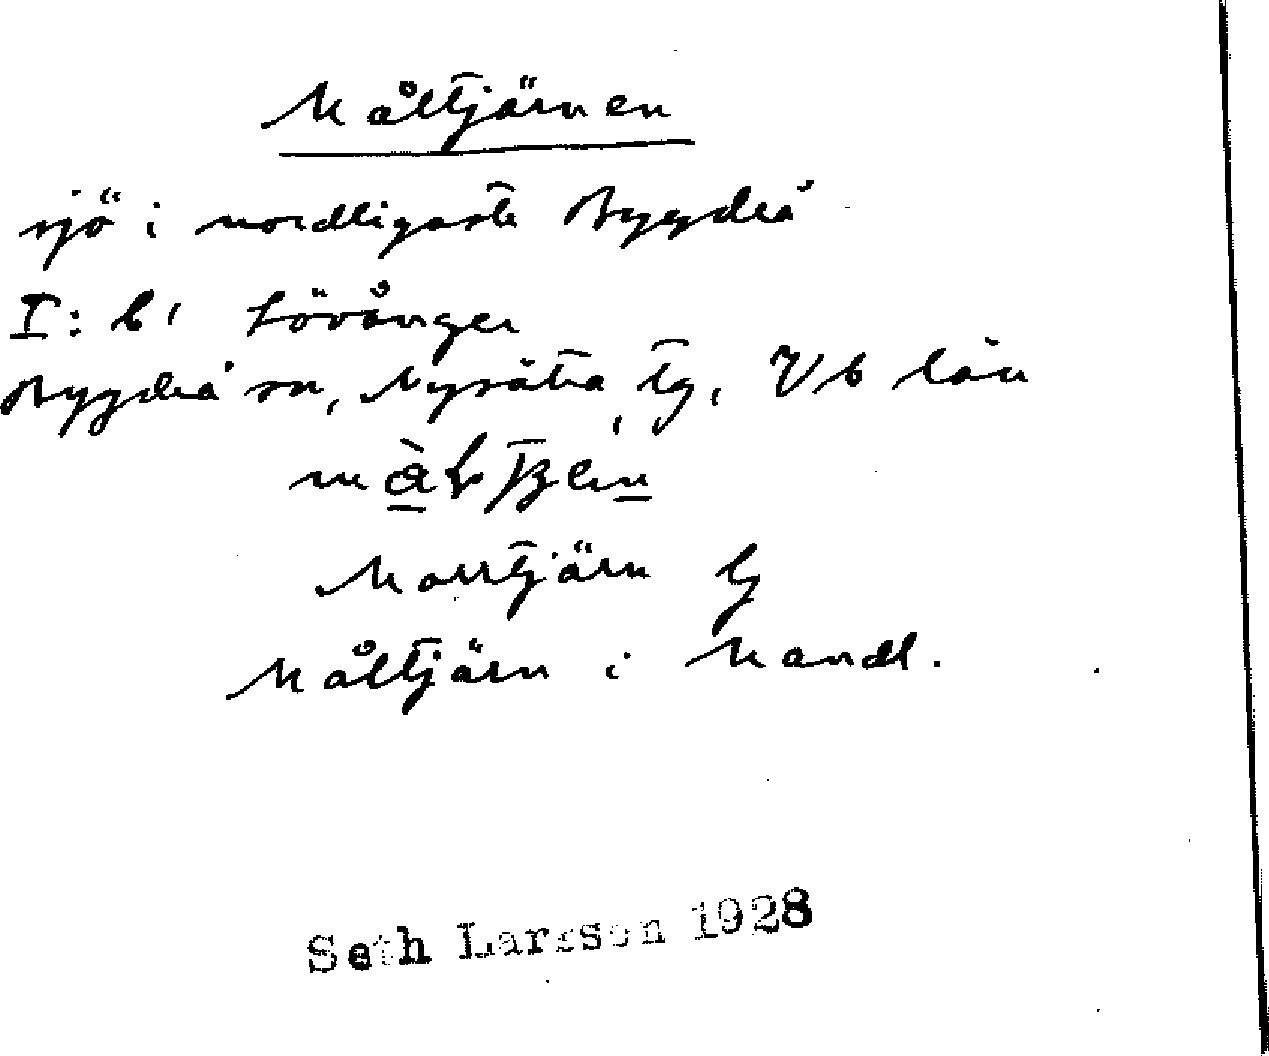 Måltjärnen
sjö i nordligaste Bygdeå
I: b, Lövånger
Bygdeå sn, Nysätra tg, Vb län
Morrtjärn
Måltjärn i Mandl.
Seth Larsson 1928